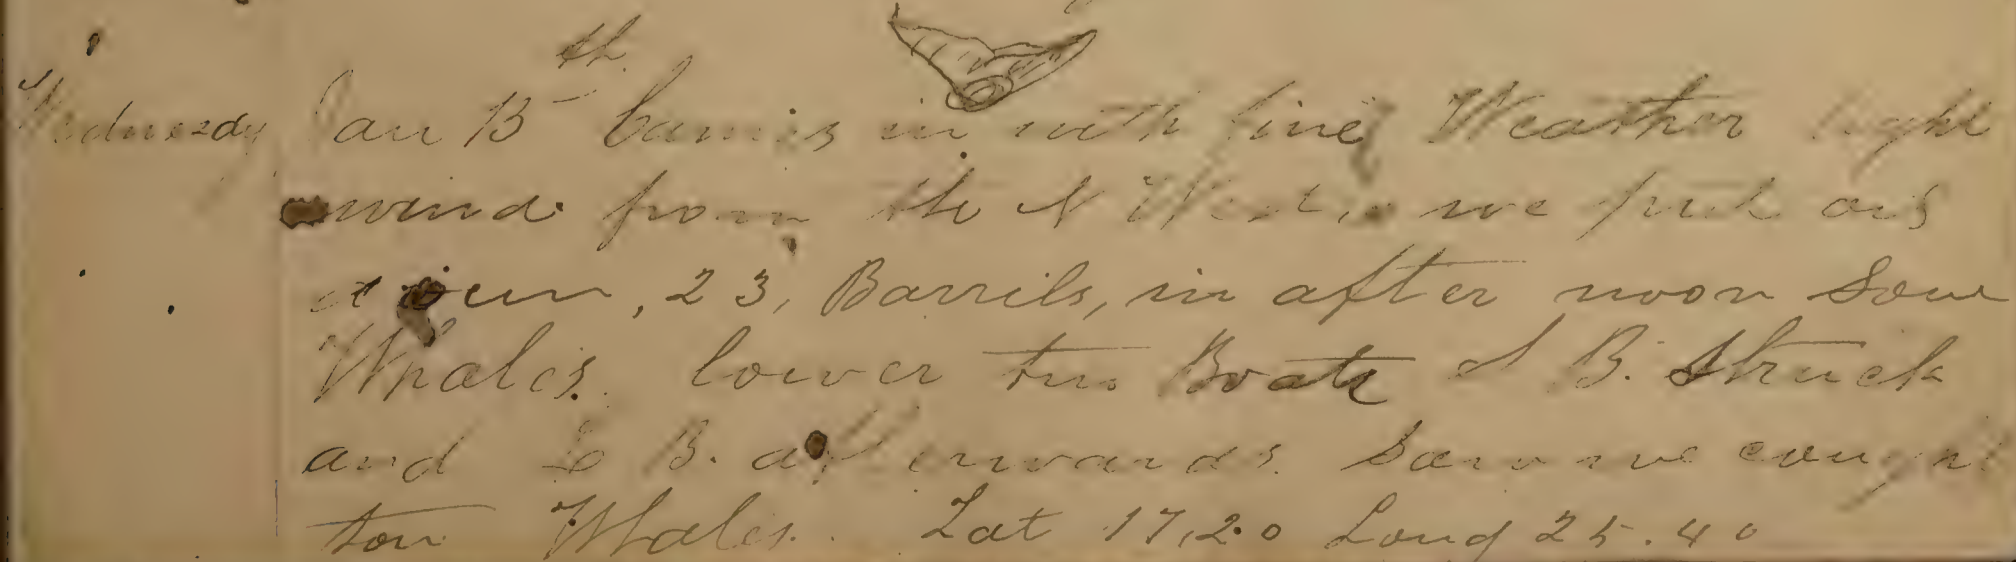 Wednesdy Jan 15th Comes in with fine Weather light
wind from the N West, we put oil
down, 23, Barrils, in after noon Saw
Whales. lower two Boats S B. Struck
and L B. afterwards. Saw we caught
tow Whales. Lat 17,20 Long 25.40